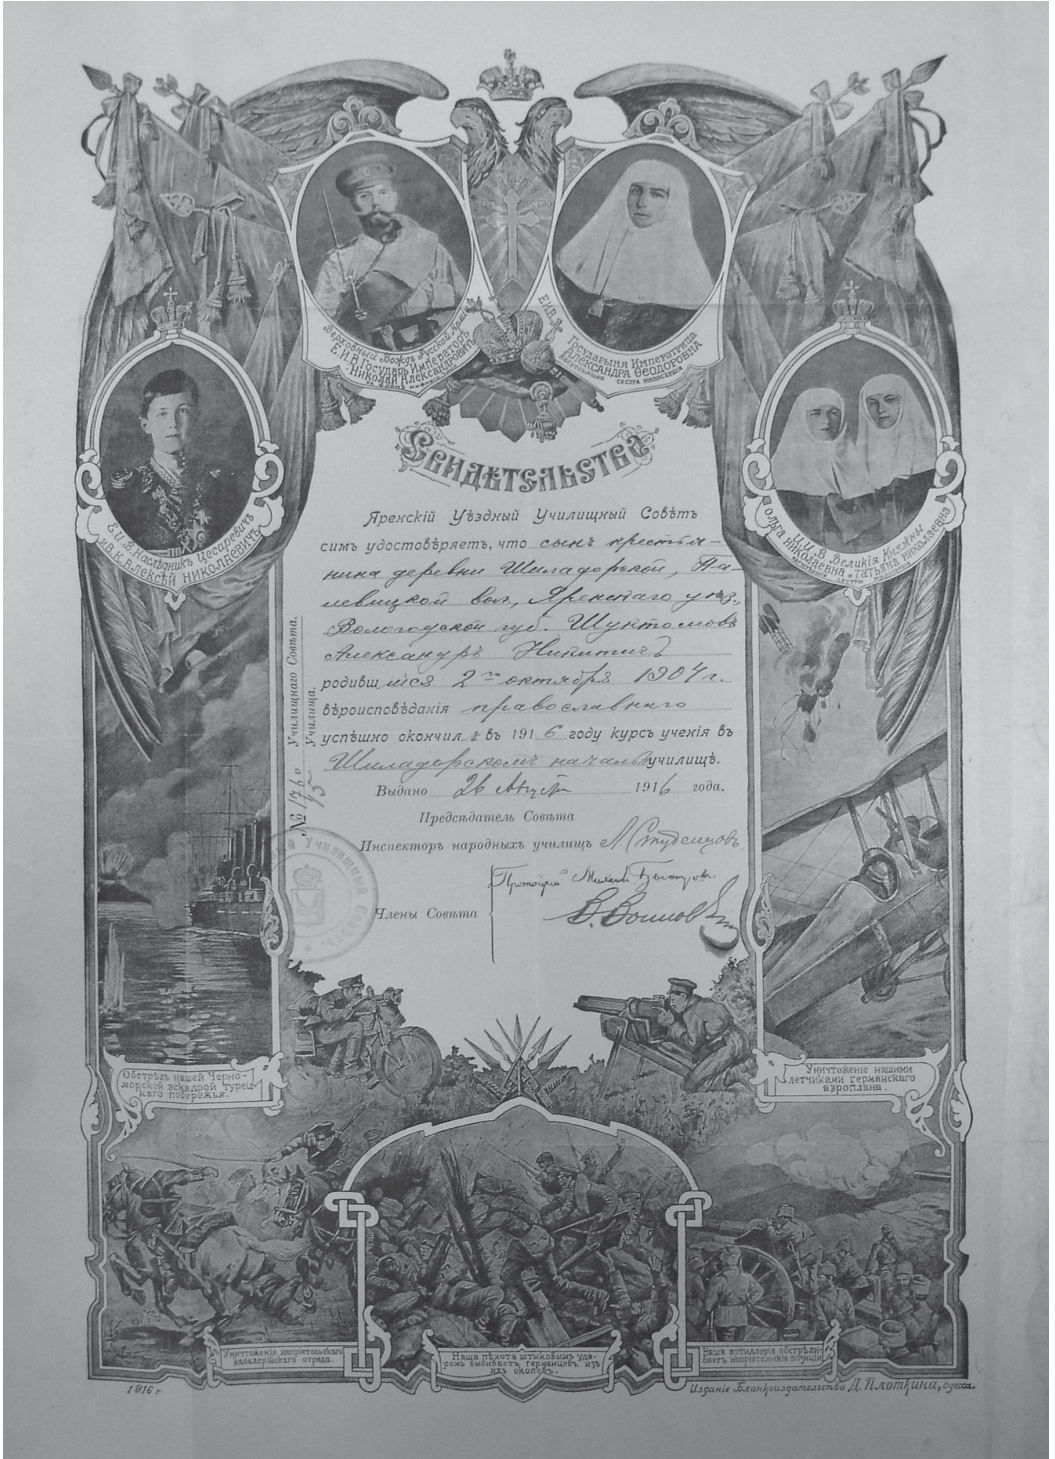 Верховный Вождь Русской Армiи
Е.И.В. Государь Императоръ
Николай Александровичъ
Е.И.В.
Государыня Императрица
Александра Ѳеодоровна
сестра милосердiя
Е.И.В. Наслѣдникъ Цесаревичъ
и В.К. Алексѣй Николаевичъ
И.И.В. Великiя Княжны
Ольга Николаевна и Татьяна Николаевна
Свидѣтельство
Яренскiй Уѣздный Училищный Совѣтъ
симъ удостовѣряетъ, что сынъ крестья-
нина деревни Шиладорской, Па-
левицкой вол., Яренскаго уѣз.,
Вологодской губ. Шухтомовъ
Александръ Никитичъ
родившийся 2го октября 1904 г.
вѣроисповѣданiя православнаго
успѣшно окончилъ въ 1916 году курсъ ученiя въ
Шиладорскомъ началь. училищѣ.
Выдано 26 Августа 1916 года.
Предсѣдатель Совѣта
Инспекторъ народныхъ училищъ
Протоiерей
Члены Совѣта
№ 1760 Училищнаго Совѣта.
15 Училища.
Училищный Совѣтъ
Обстрѣлъ нашей Черно-
морской эскадрой Турец-
каго побережья.
Уничтоженiе нашими
летчиками германскаго
аэроплана.
Уничтоженiе непрiятельскаго
кавалерiйскаго отряда.
Наша пѣхота штыковымъ уда-
ромъ выбиваетъ германцевъ изъ
ихъ окоповъ.
Наша артиллерiя обстрѣли-
ваетъ непрiятельскiя позицiи
1916 г.
Изданiе Бланкоиздательства Д. Плоткина, Одесса.